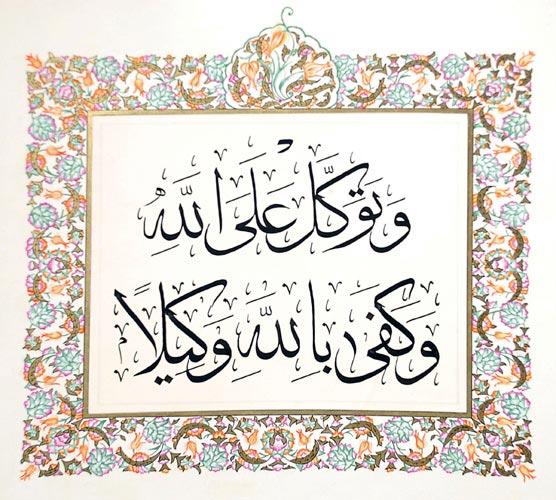 وَتَوَكَّلْ عَلَى اللَّهِ
وَكَفَى بِاللَّهِ وَكِيلًا